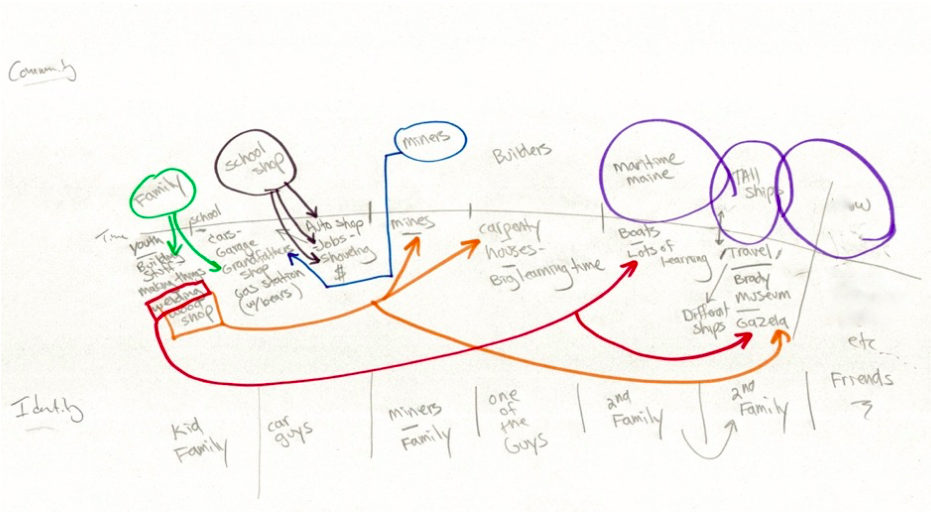 Community
Family
school
shop
miners
Builders
maritime
maine
TAll
ships
Time
youth
Building
stuff
making things
welding
wood
shop
school
cars-
Garage
Grandfathers
shop
Gas station
(w/bears)
Auto shop
Jobs -
shoveling
$
mines
carpenty
houses-
Big learning time
Boats
Lots of
learning
Travel
Brady
museum
Gazela
Different
ships
etc
Identity
Kid
Family
car
guys
miners
Family
one
of
the
Guys
2nd
Family
2nd
Family
Friends
?